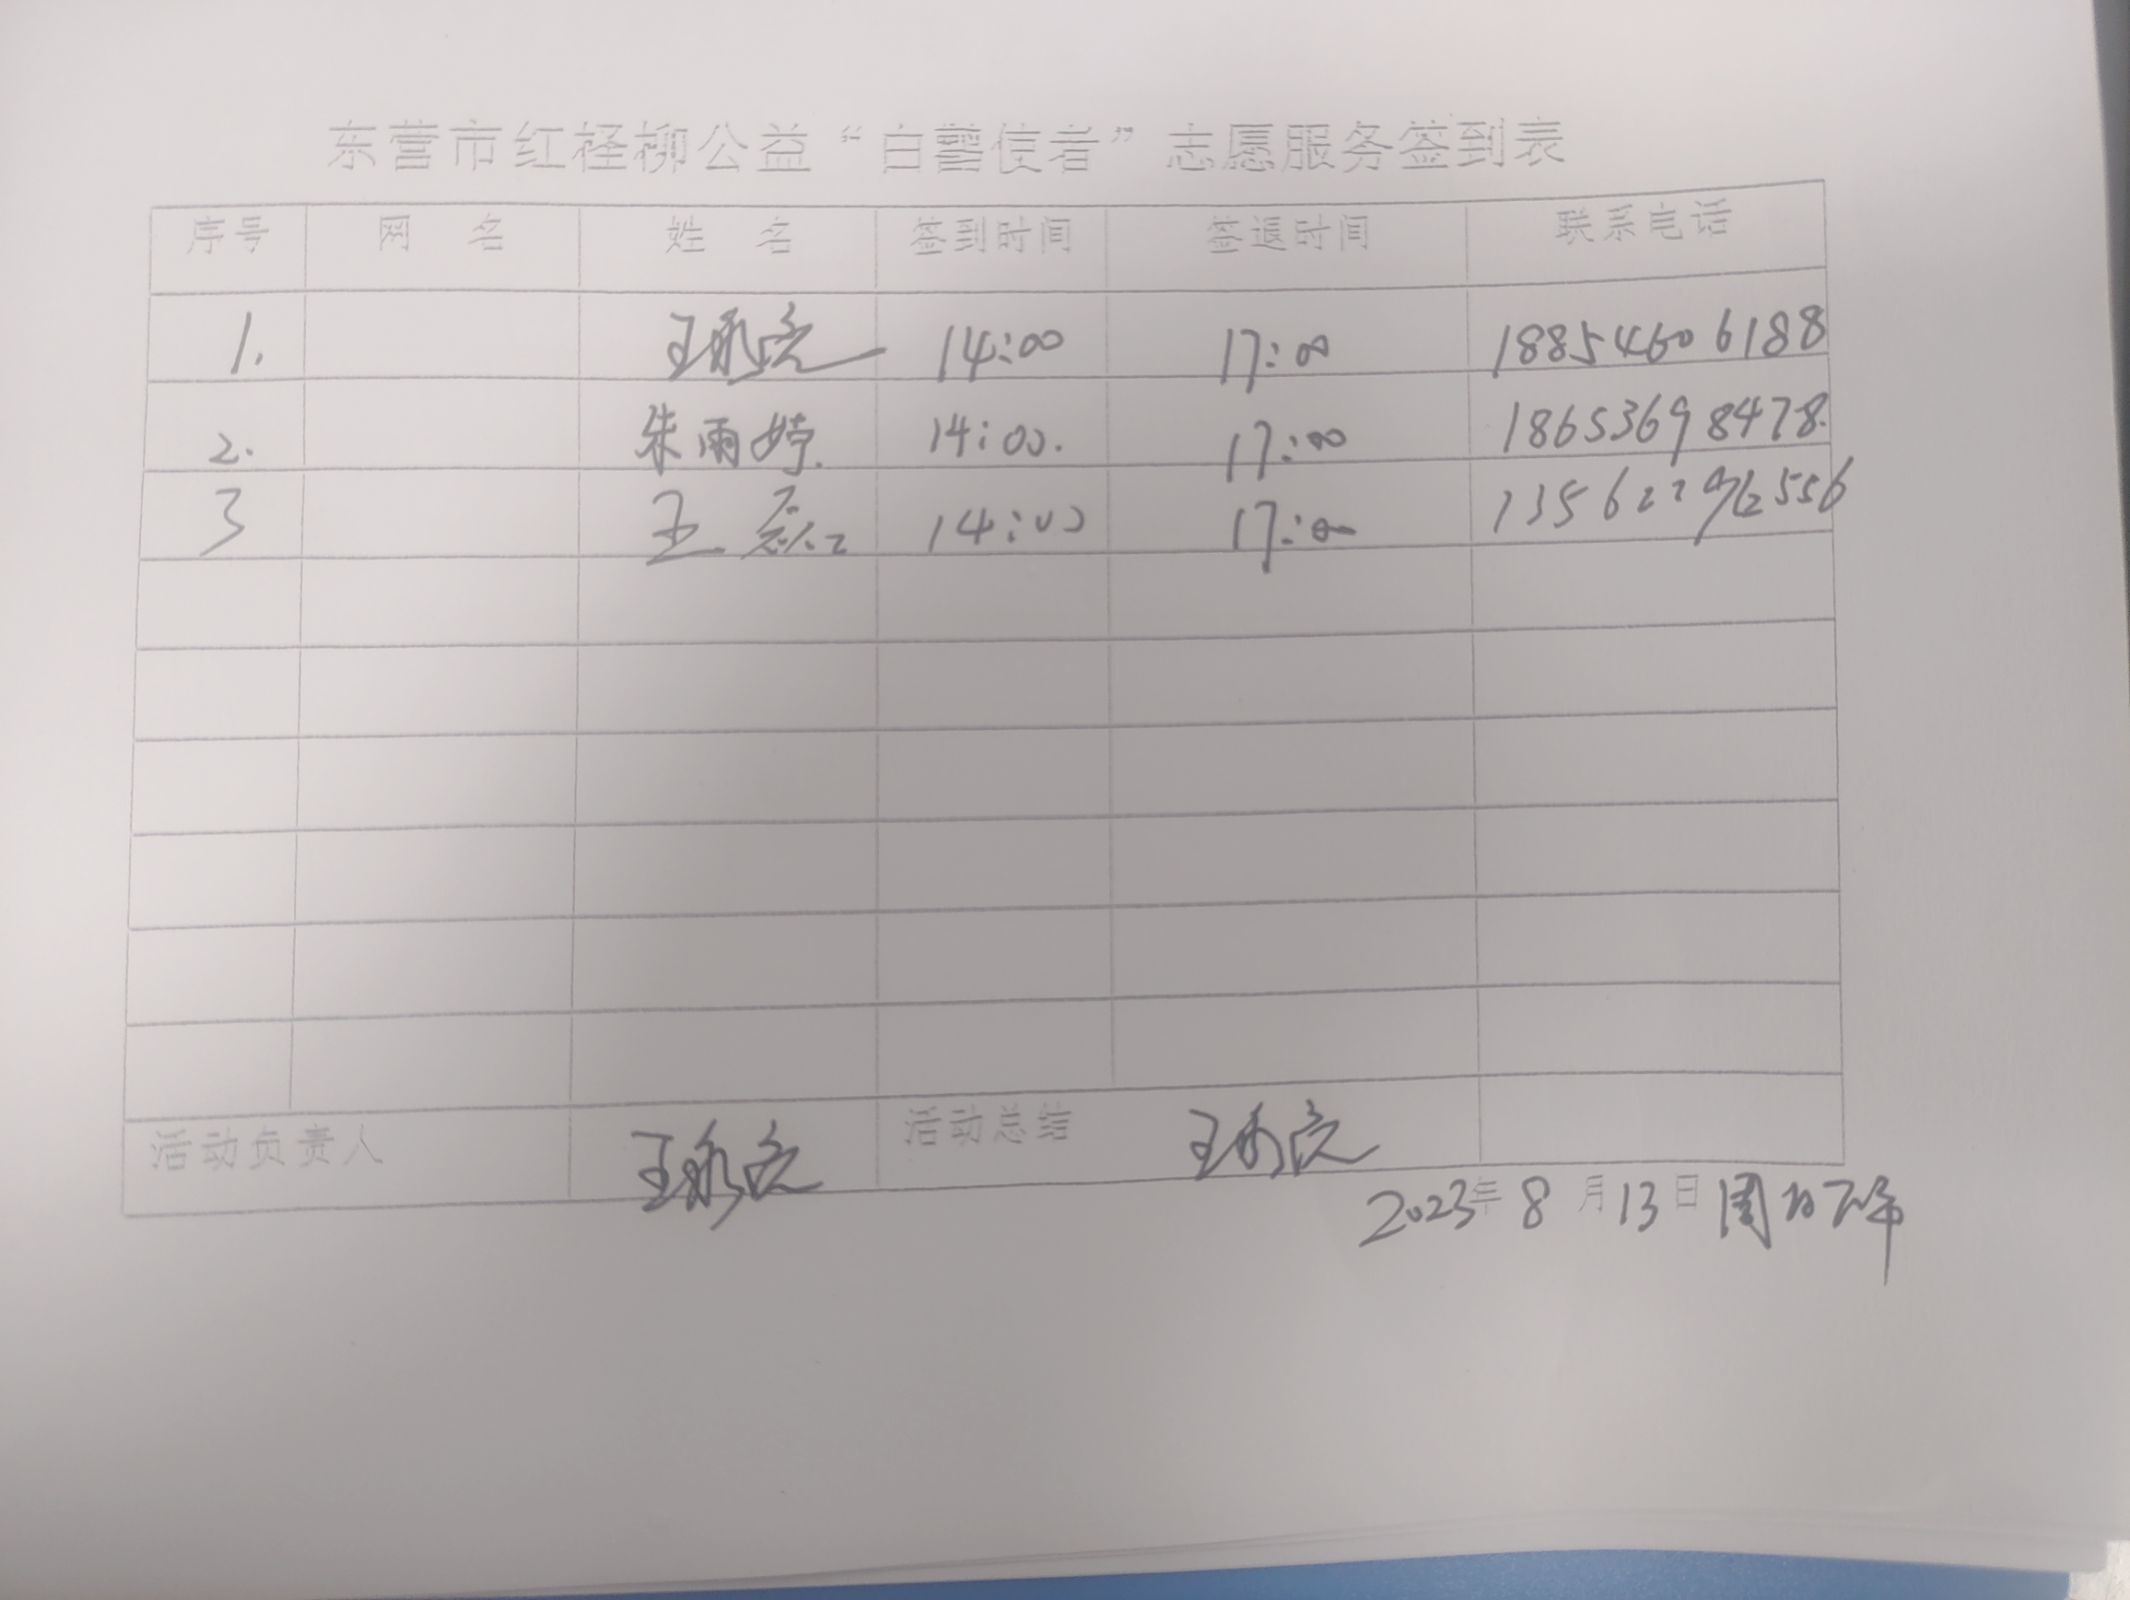 东营市红柽柳公益“白警使者”志愿服务签到表
序号 网 名 姓 名 签到时间 签退时间 联系电话
1. 王永亮 14:00 17:00 18854606188
2. 朱雨婷 14:00. 17:00 18653698478
3 王磊 14:00 17:00
活动负责人 王永亮 活动总结 王永亮
2023年8月13日周日下午